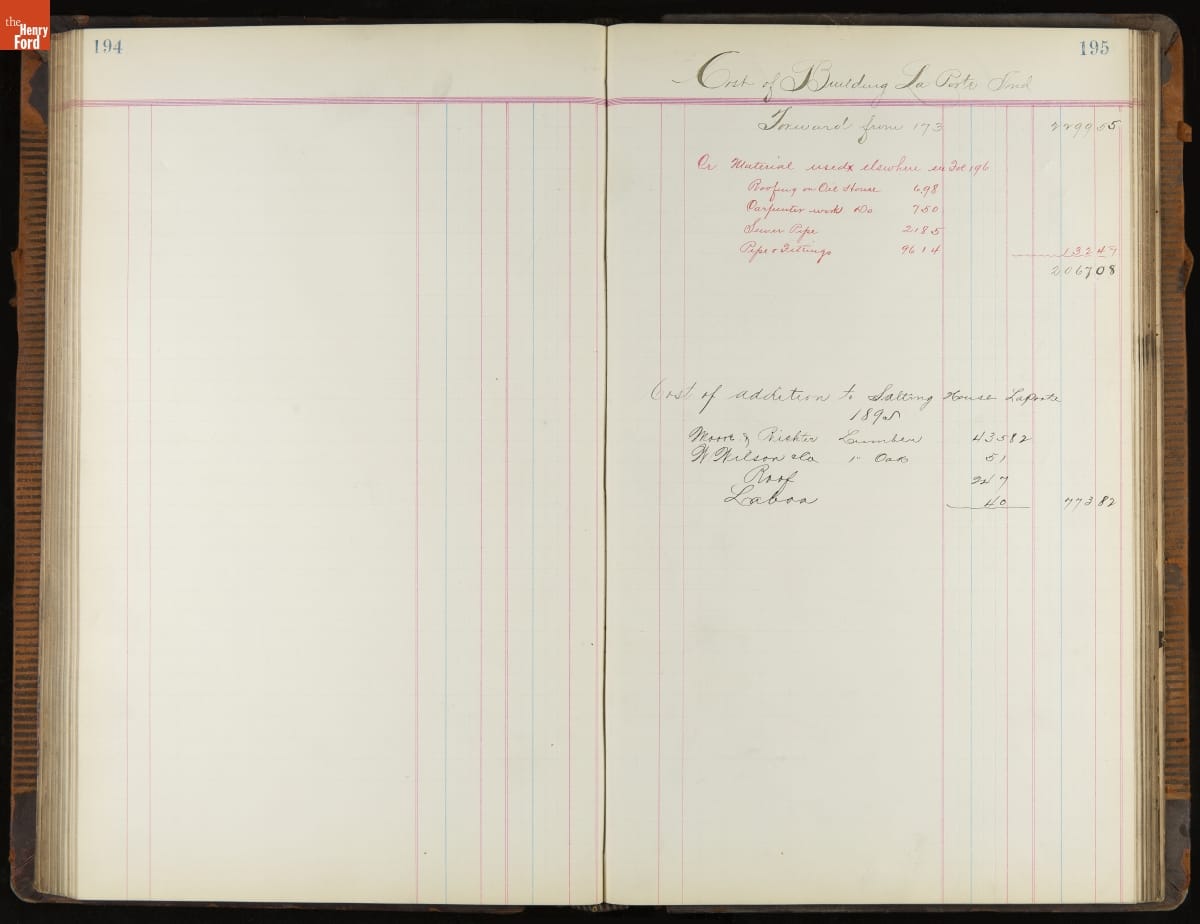 the Henry Ford
194
195
Cost of Building La Porte Ind
Forward from 173
Cr Material used elsewhere see Fol 196
Roofing on Oil House 6.98
Carpenter work Do 7 50
Sewer Pipe 21 85
Pipe & Fittings 96 14 132 47
2067 08
Cost of addition to Salting House LaPorte
1895
Moore & Richter Lumber 435 82
W Wilson &Co " Oak 51
Roof 247
Labor 40 773 82